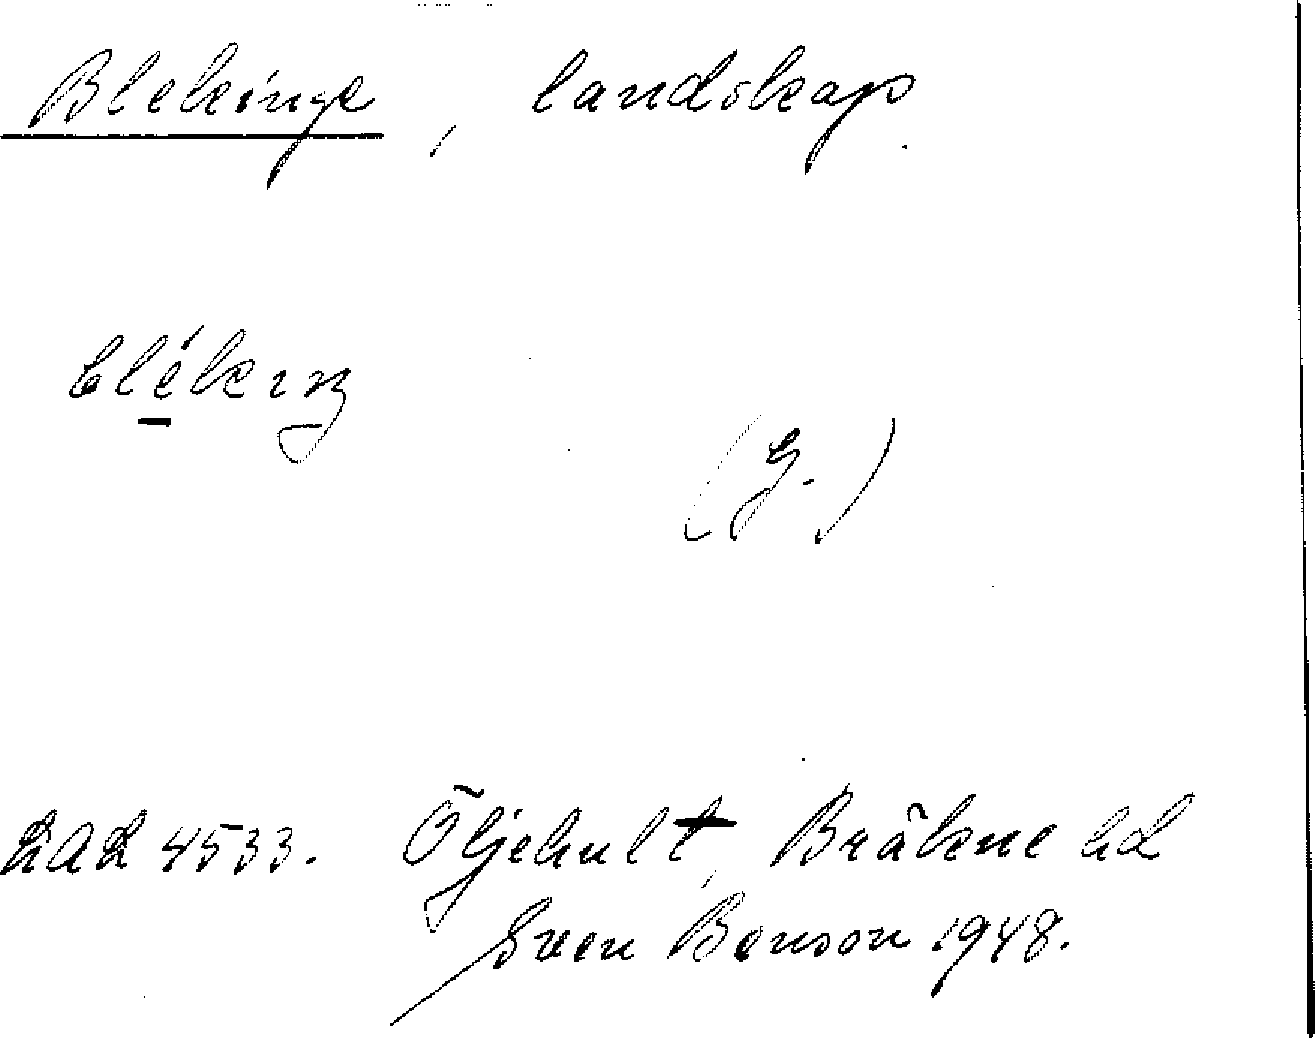 Blekinge, landskap.
blé̠kıŋ
(G.)
LAL 4533. Öljehult, Bräkne hd
Sven Benson 1948.